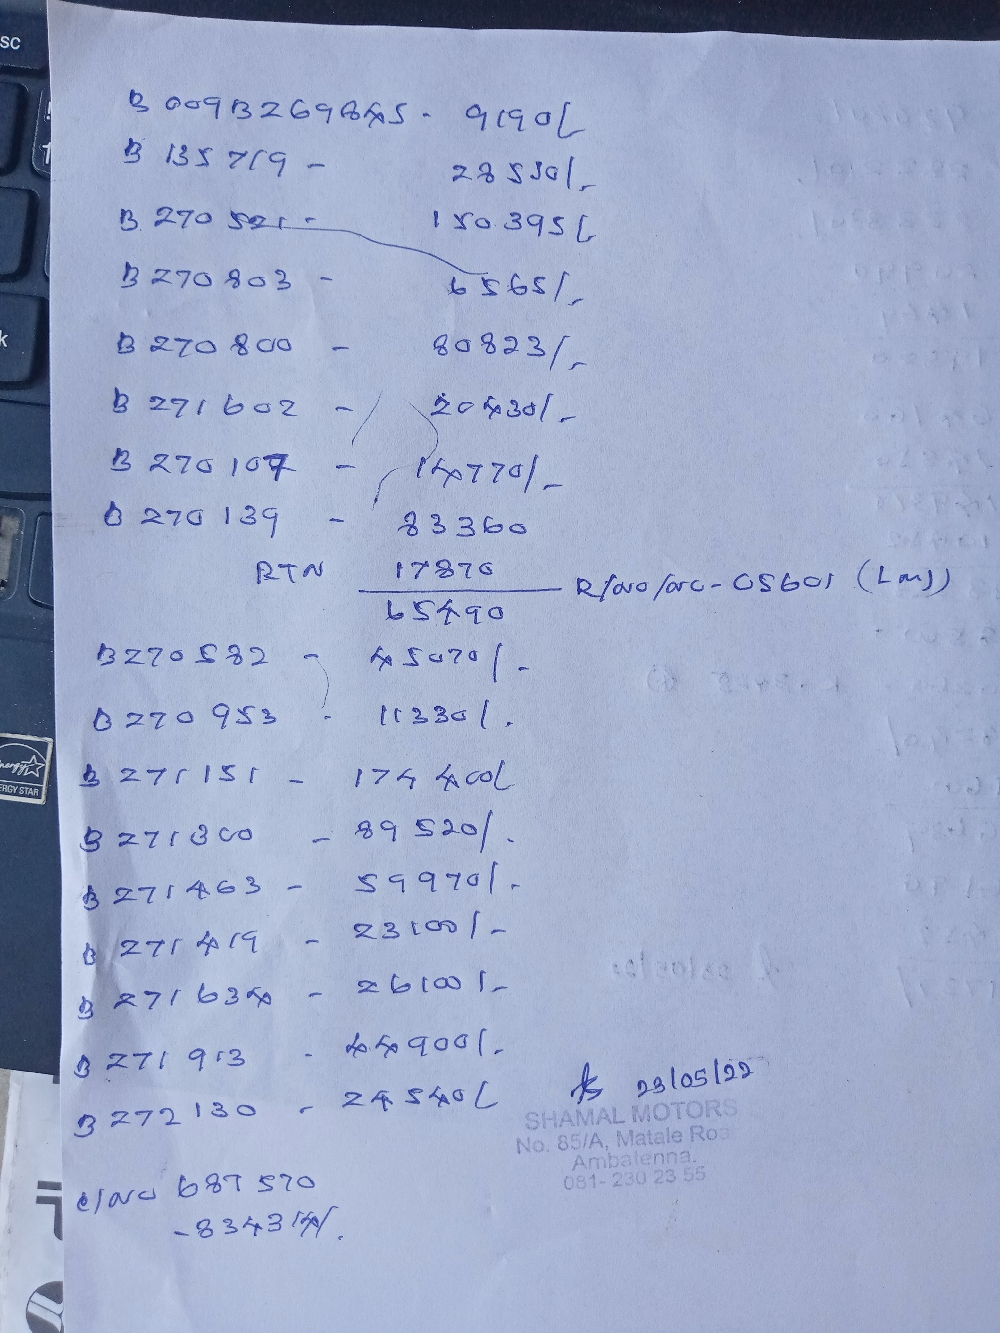 sc
k
B 009B269845 - 9190/
B 135719 - 28530/-
B 270521 - 150395/
B 270803 - 6565/-
B 270800 - 80823/-
B 271602 - 20430/-
B 270107 - 14770/-
B 270139 - 83360
RTN 17870 R/no/nc-05601
65490
B270582 - 45070/-
B 270953 - 11330/.
B 271151 - 174400/
B 271300 - 89520/.
B 271463 - 59970/-
B 271419 - 23100/-
B 271634 - 26100/-
B 271913 - 44900/.
B 272130 - 24540/
23/05/22
SHAMAL MOTORS
No. 85/A, Matale Roa
Ambatenna.
081-230 23 55
c/no 687570
-834314/.
energy
ERGY STAR